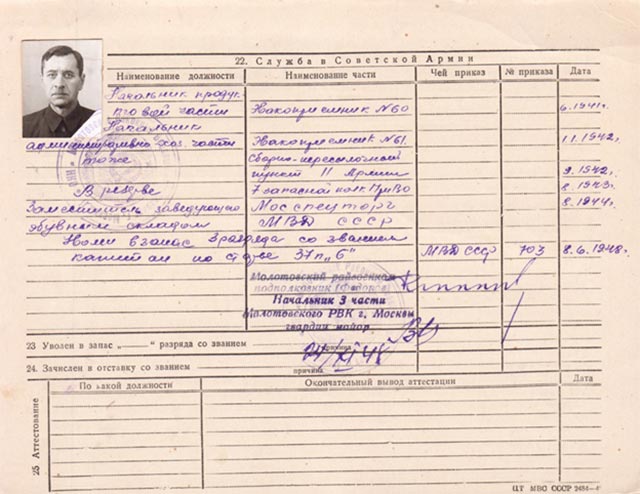 22. Служба в Советской Армии
Наименование должности Наименование части Чей приказ № приказа Дата
Начальник продук
Накоплемник №60 6.1941г.
Начальник
административно хоз. части Накоплемник №61. 1.1.1942г.
тоже Сборно-пересыльный
пункт 11 Армии 9.1942г.
В резерве 7 запасной полк ПриВО 8.1943г.
Заместитель заведующего Мосспецторг 8.1944г.
обувным складом МВД СССР
в запас 3 разряда со званием
капитан по ст. 37 п. „б" МВД СССР 703 8.6.1948г.
Молотовский райвоенком
подполковник (Федоров)
Начальник 3 части
Молотовского РВК г. Москвы
гвардии майор
23 Уволен в запас „ " разряда со званием
причина
24/XI 48
24. Зачислен в отставку со званием
причина
25 Аттестование
По какой должности Окончательный вывод аттестации Дата
ЦТ МВС СССР 2484—4